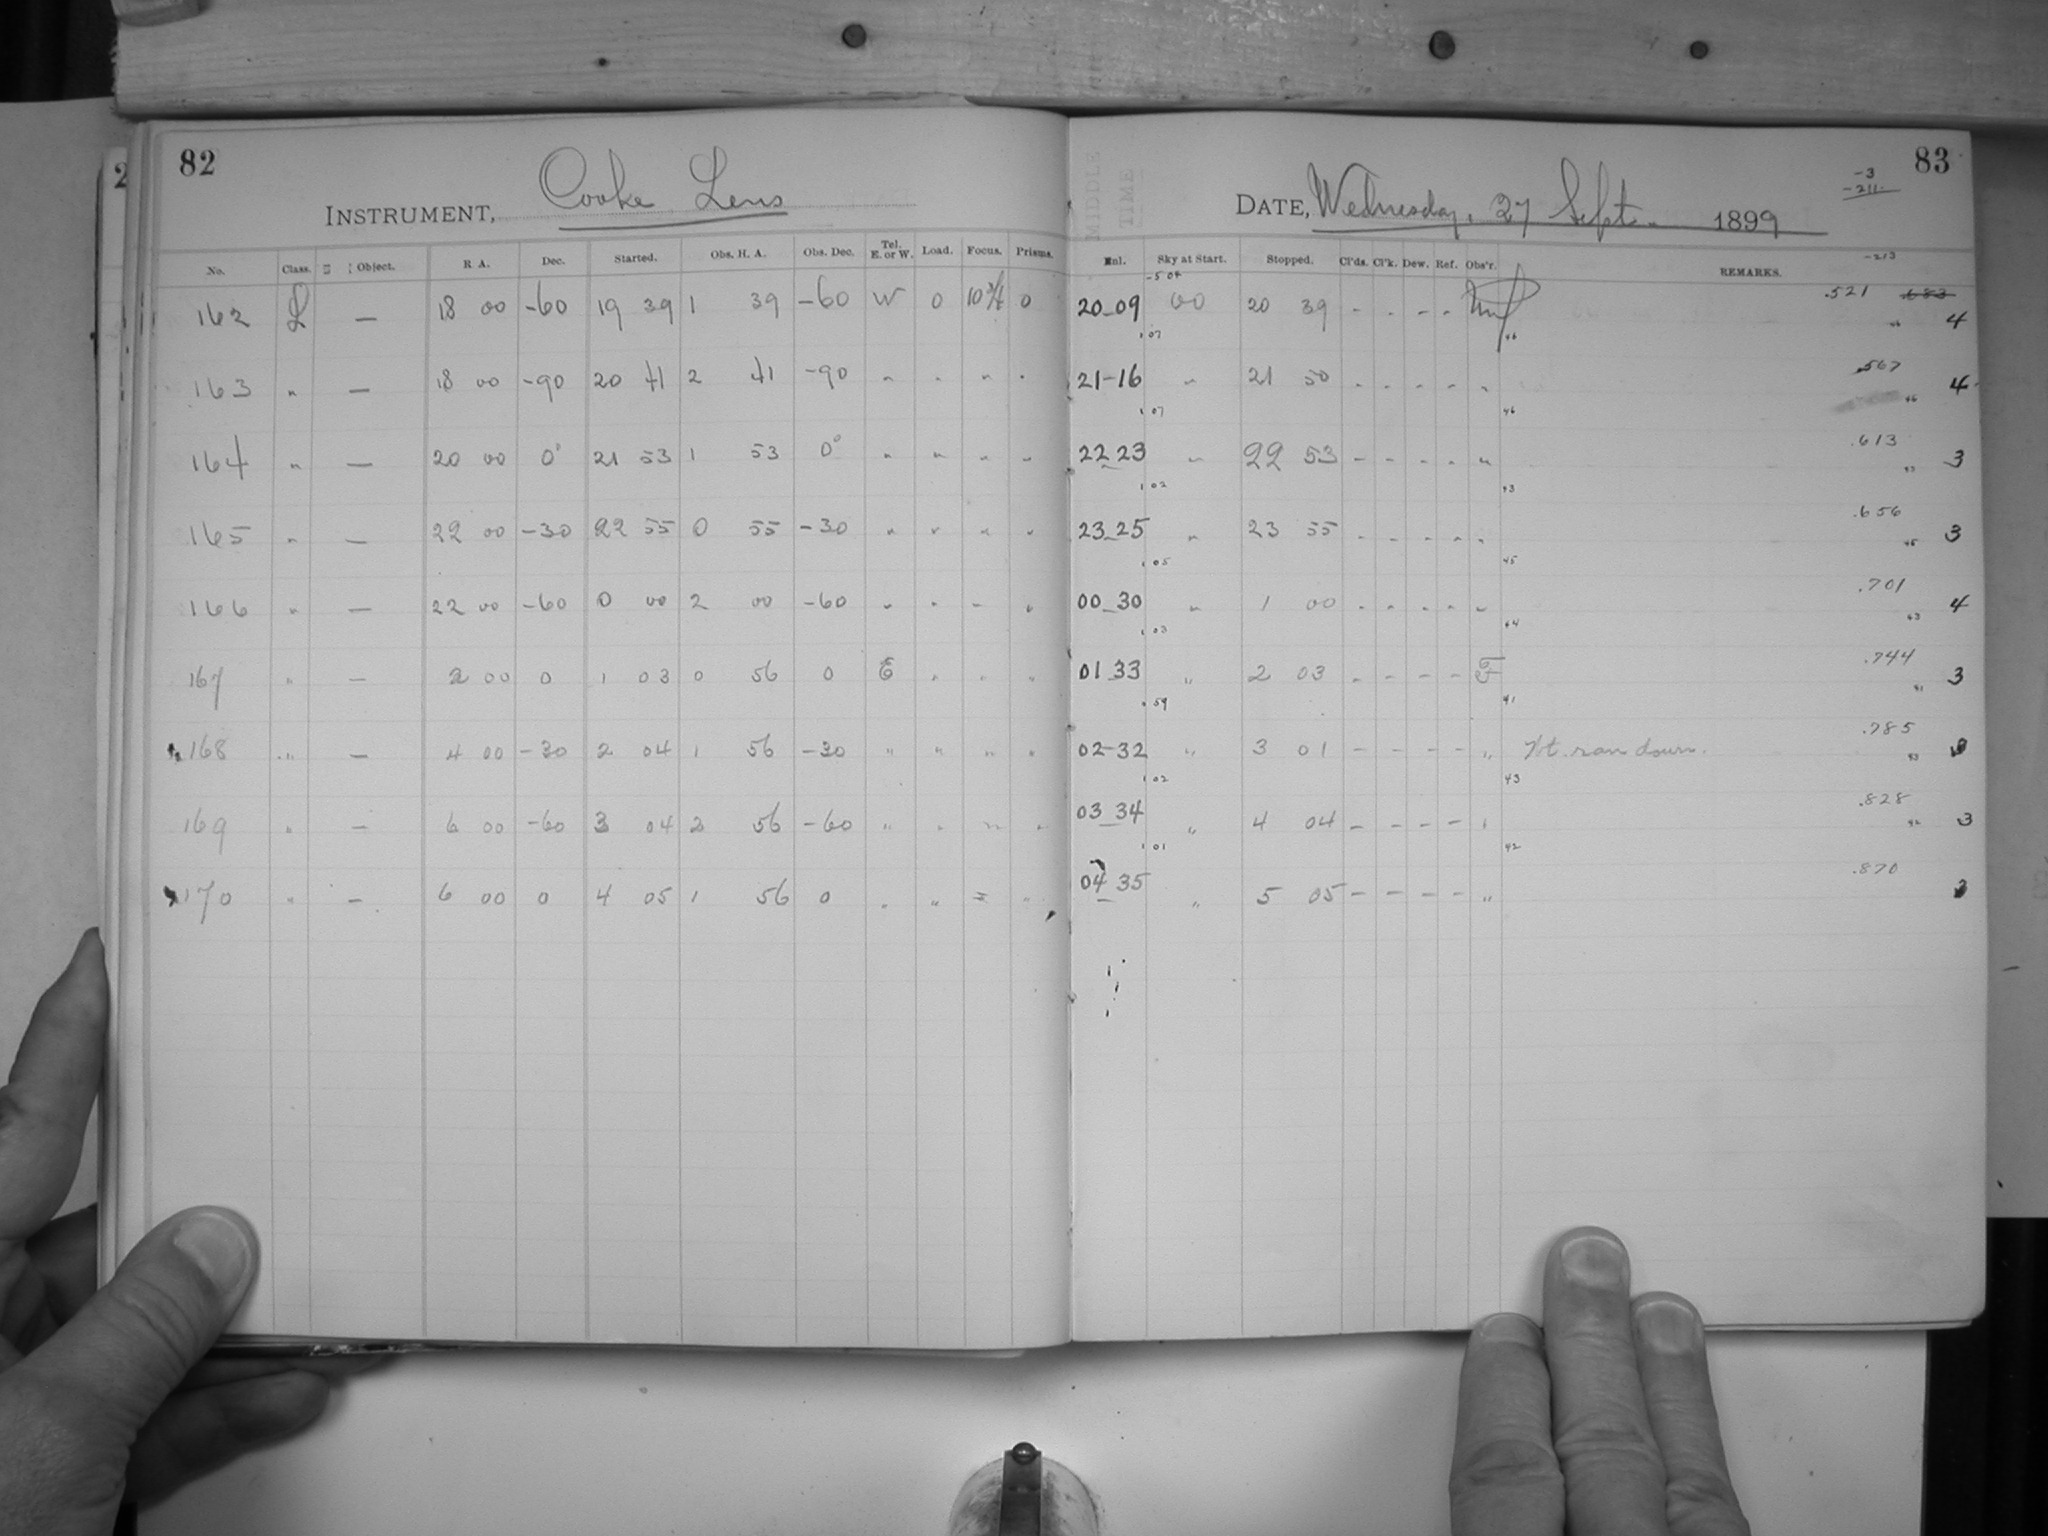 82
INSTRUMENT, Cooke Lens
No. Class. Object. R. A. Dec. Started. Obs. H. A. Obs. Dec. Tel. E. or W. Load. Focus. Prisms.
162 L — 18 00 -60 19 39 1 39 -60 W 0 10 3/4 0
163 " — 18 00 -90 20 41 2 41 -90 " " " "
164 " — 20 00 0° 21 53 1 53 0° " " " "
165 " — 22 00 -30 22 55 0 55 -30 " " " "
166 " — 22 00 -60 0 00 2 00 -60 " " " "
167 " — 2 00 0 1 03 0 56 0 E " " "
168 " — 4 00 -30 2 04 1 56 -30 " " " "
169 " — 6 00 -60 3 04 2 56 -60 " " " "
170 " — 6 00 0 4 05 1 56 0 " " " "
MIDDLE TIME
83
-3
-211.
DATE, Wednesday, 27 Sept. 1899
-213
Sky at Start. Stopped. Cl'ds. Cl'k. Dew. Ref. Obs'r. REMARKS.
-504
20-09 00 20 39 - - - - .521 .683 4
1 07 46 46
21-16 " 21 50 - - - - " .567 4
1 07 46 46
22 23 " 22 53 - - - - " .613 3
1 02 43 43
23-25 " 23 55 - - - - " .656 3
1 05 45 45
00-30 " 1 00 - - - - " .701 4
1 03 44 43
01 33 " 2 03 - - - - .744 3
59 41 41
02-32 " 3 01 - - - - " Wt. ran down. .785
1 02 43 43
03 34 " 4 04 - - - - " .828 3
1 01 42 42
04 35 " 5 05 - - - - " .870 3